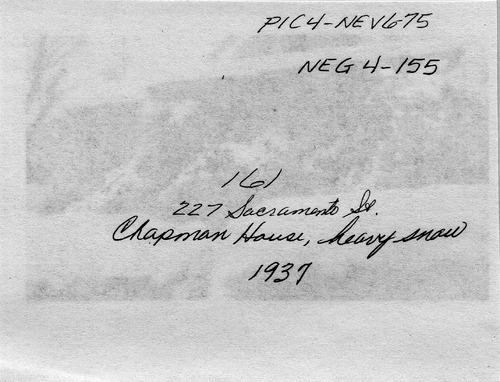 PIC4-NEV675
NEG 4-155
161
227 Sacramento St.
Chapman House, heavy snow
1937